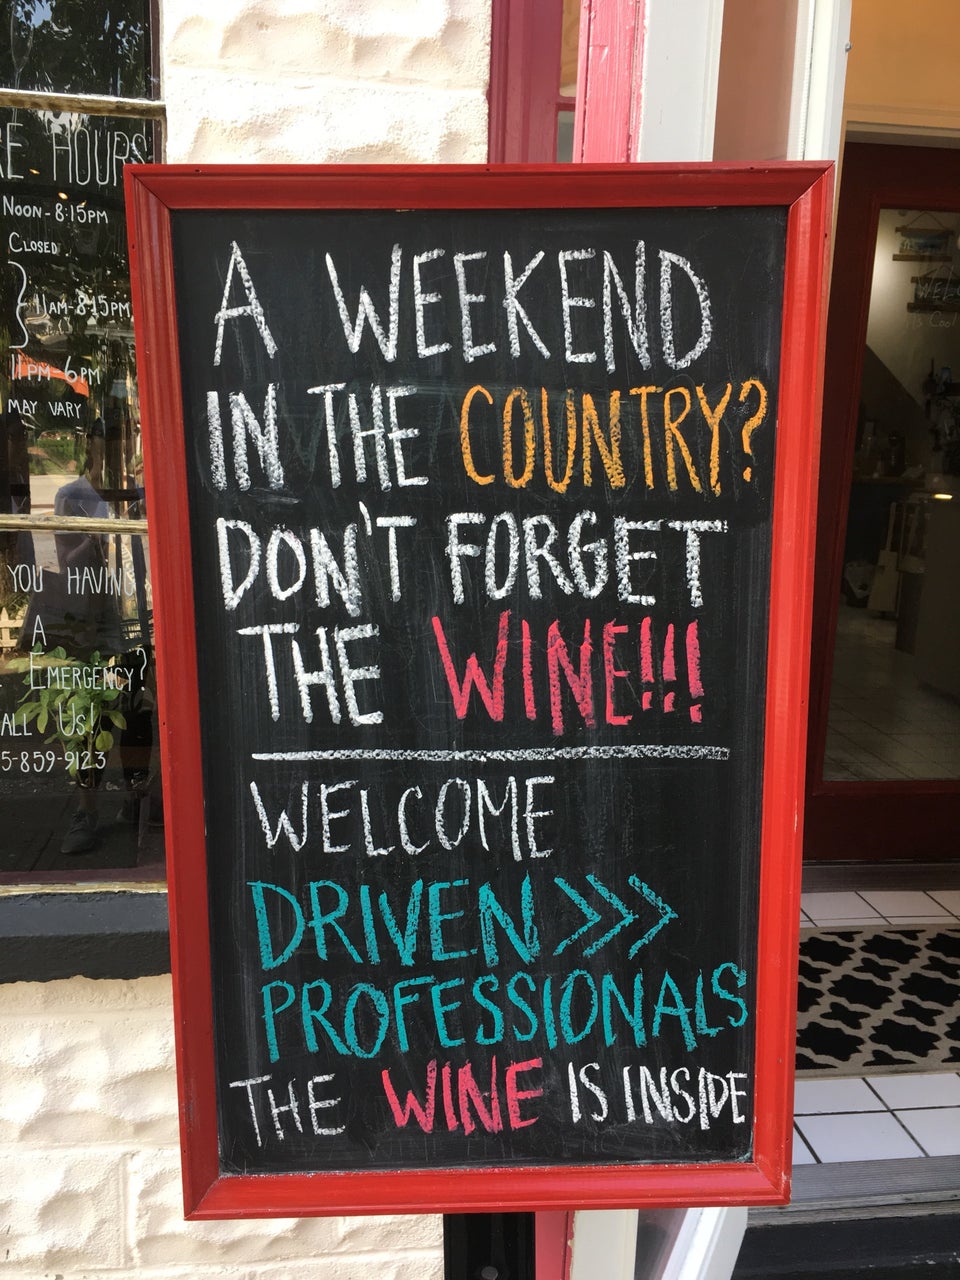 A WEEKEND
IN THE COUNTRY?
DON'T FORGET
THE WINE!!!
WELCOME
DRIVEN >>>
PROFESSIONALS
THE WINE IS INSIDE
RE HOURS
NOON - 8:15PM
CLOSED
11AM-8:15PM
11PM-6PM
MAY VARY
YOU HAVING
A
EMERGENCY?
ALL US!
5-859-9123